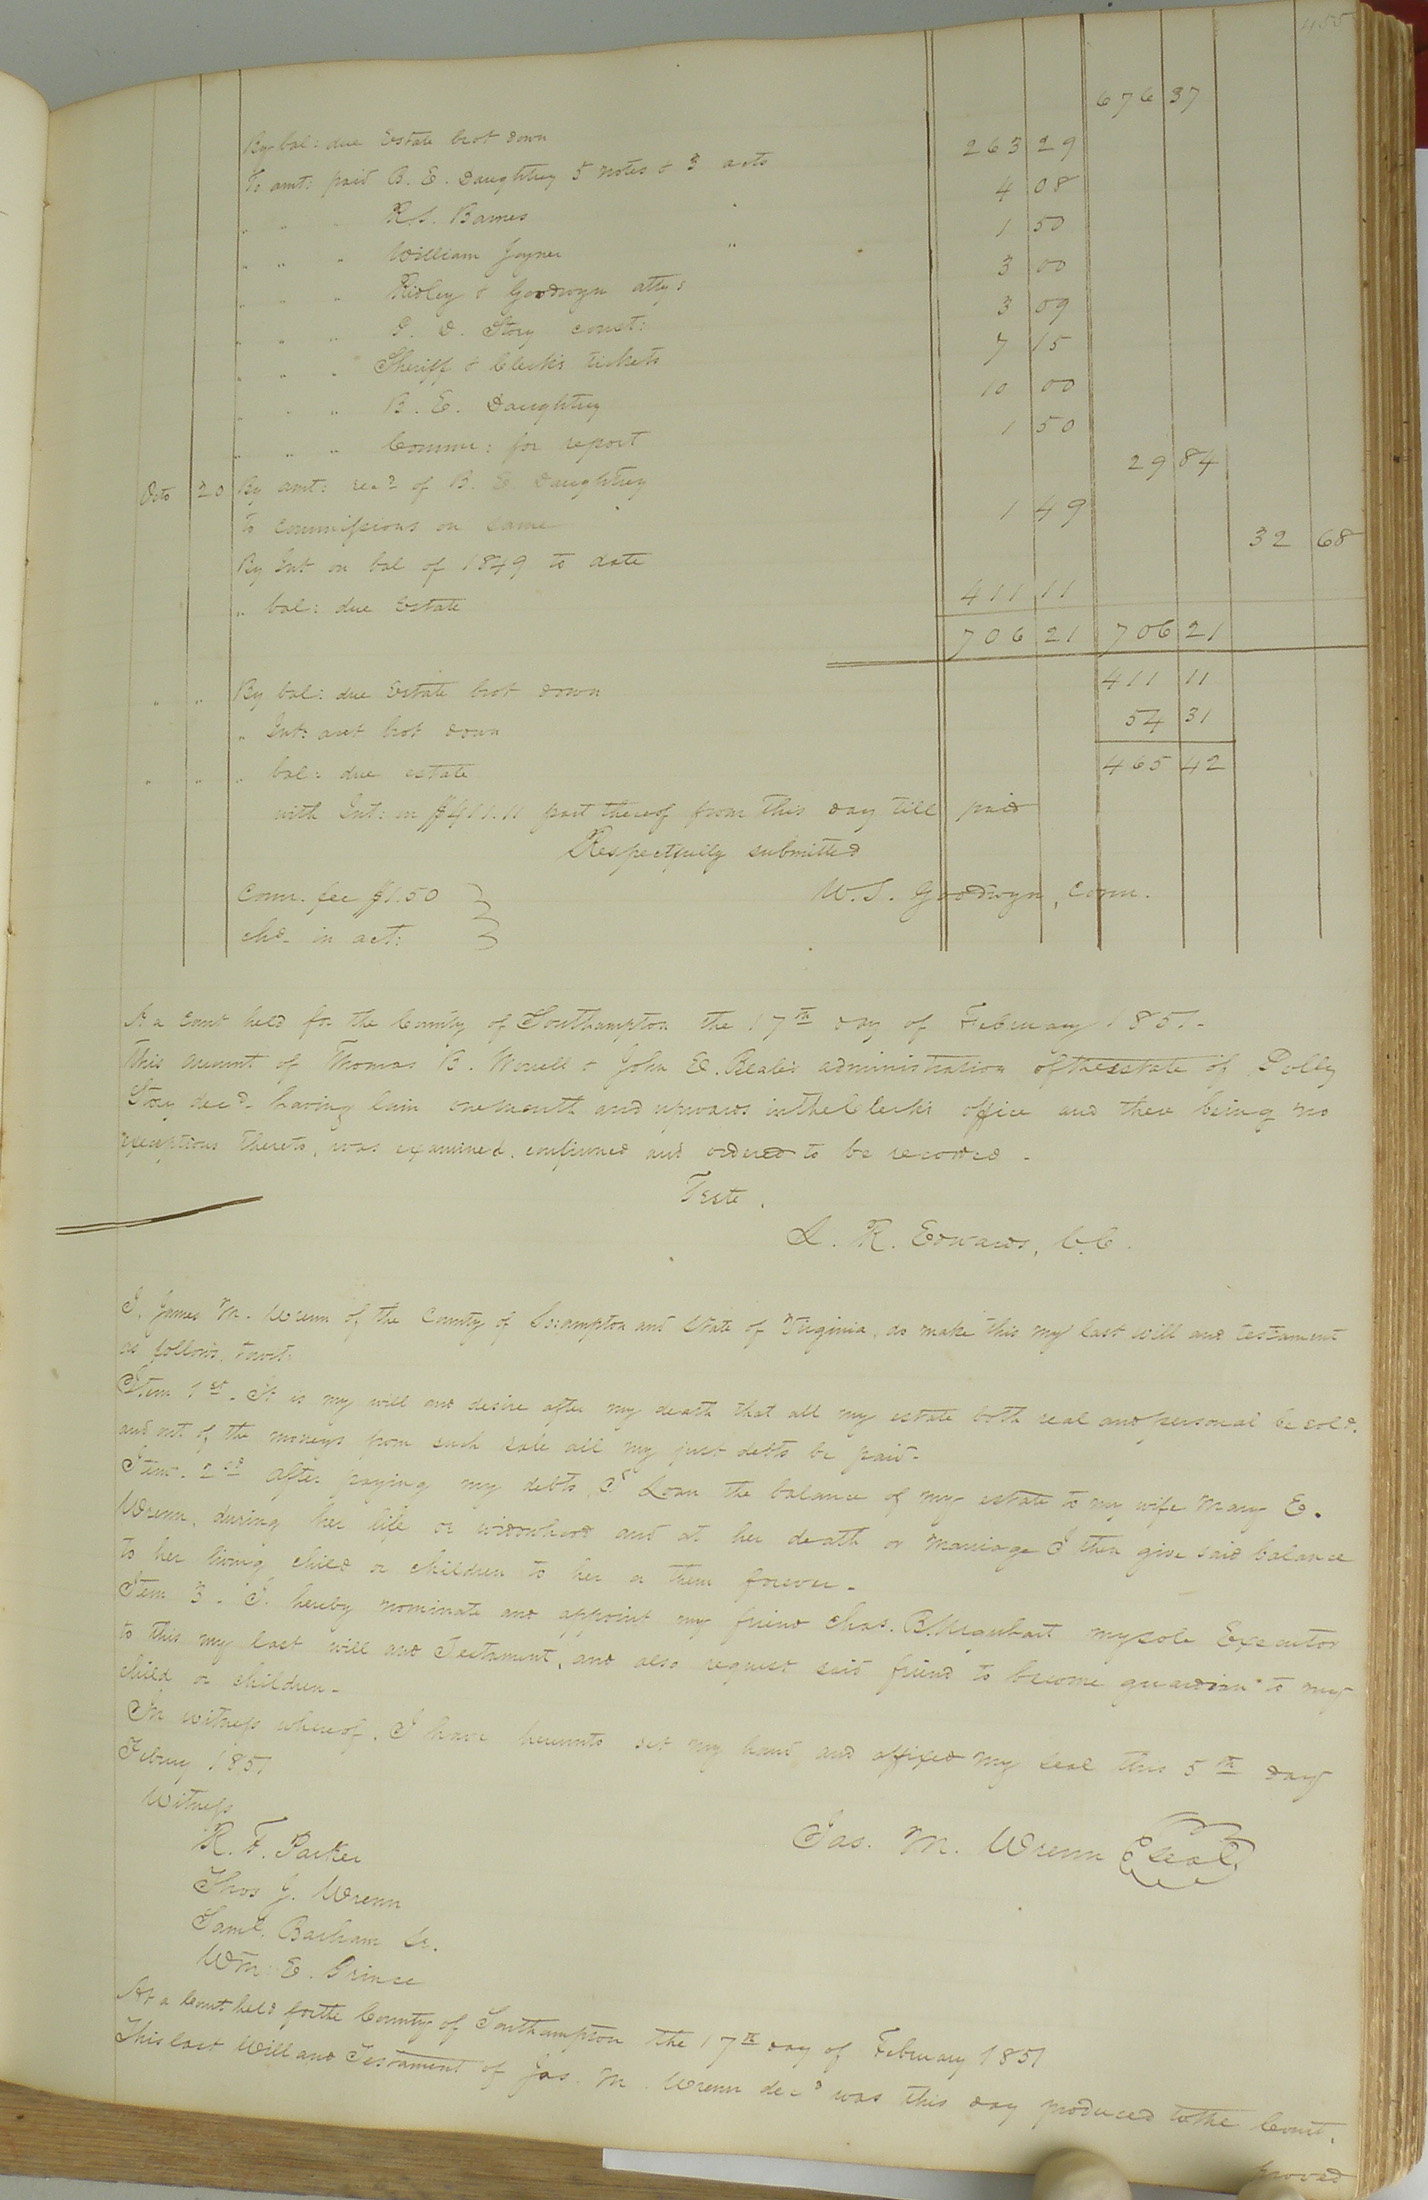 455
676 37
By bal: due Estate brot down
To amt: paid B. E. Daughtrey 5 notes & 3 accts 263 29
" " " R. S. Barnes " 4 08
" " " William Joyner " 1 50
" " " Ridley & Goodwyn attys 3 00
" " " J. D. Story const: 3 09
" " " Sheriff & Clerk's tickets 7 15
" " " B. E. Daughtrey 10 00
" " " Commr: for report 1 50
Octo 20 By amt: recd of B. E. Daughtrey 29 84
To commissions on same 1 49
By Int on bal of 1849 to date 32 68
" bal: due Estate 411 11
706 21 706 21
" " By bal: due Estate brot down 411 11
" Int: amt brot down 54 31
" " " bal: due estate 465 42
with Int: on $411.11 part thereof from this day till paid
Respectfully submitted
Comr. fee $1.50 W. S. Goodwyn, Comr.
chd. in act:
At a Court held for the County of Southampton the 17th day of February 1851.
This account of Thomas B. Worrell & John E. Beale's administration of the estate of Polly
Story decd. having lain one month and upwards in the Clerk's office and there being no
exceptions thereto, was examined, confirmed and ordered to be recorded.
Teste.
L. R. Edwards, C.C.
I, James M. Wrenn of the County of Southampton and State of Virginia, do make this my last will and testament
as follows, towit:
Item 1st. It is my will and desire after my death that all my estate both real and personal be sold,
and out of the moneys from such sale all my just debts be paid.
Item. 2nd After paying my debts, I Loan the balance of my estate to my wife Mary E.
Wrenn, during her life or widowhood and at her death or marriage I then give said balance
to her living child or children to her or them forever.
Item 3. I, hereby nominate and appoint my friend Chas. B. Urquhart my sole Executor
to this my last will and Testament, and also request said friend to become guardian to my
child or children.
In witness whereof, I have hereunto set my hand and affixed my seal this 5th day
Febury 1851
Witness
R. F. Parker Jas. M. Wrenn Seal
Thos J. Wrenn
Saml. Barham Sr.
Wm. E. Prince
At a Court held for the County of Southampton the 17th day of February 1851
This last Will and Testament of Jas. M. Wrenn decd was this day produced to the Court,
proved